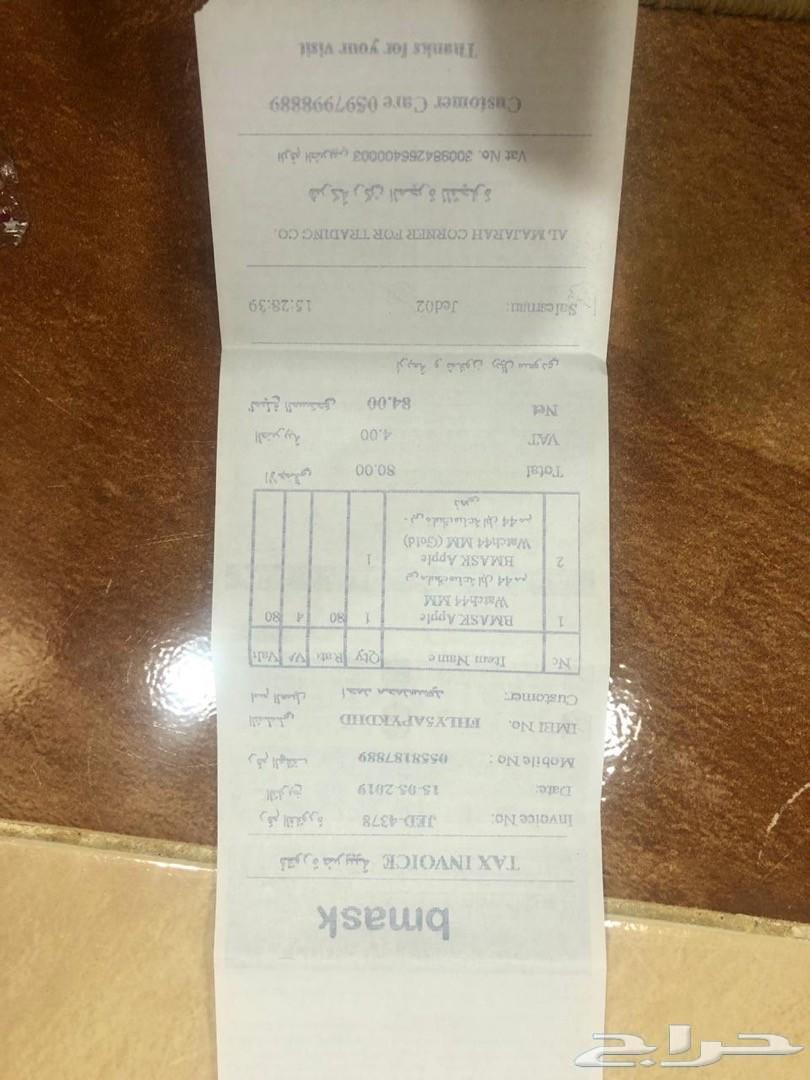 bmask
TAX INVOICE فاتورة ضريبية
Invoice No: JED-4378 رقم الفاتورة
Date: 15-05-2019 التاريخ
Mobile No : 0558187889 رقم الهاتف
IMEI No. FHLY5APYKDHD التسلسلي
Customer: احمد محمدسعيد اسم العميل
Nc Item Name Qty Rate VA Valu
1 BMASK Apple 1 80 4 80
Watch44 MM
بي ماسك ساعة ابل 44 مم
2 BMASK Apple 1
Watch44 MM (Gold)
بي ماسك ساعة ابل 44 مم -
ذهبي
Total 80.00 الاجمالي
VAT 4.00 الضريبة
Net 84.00 المبلغ المستحق
اربعة و ثمانون ريال سعودي
Salesman: Jed02 15:28:39
AL MAJARAH CORNER FOR TRADING CO.
شركة ركن المجرة للتجارة
Vat No. 300984266400003 الرقم الضريبي
Customer Care 0597998889
Thanks for your visit
حراج